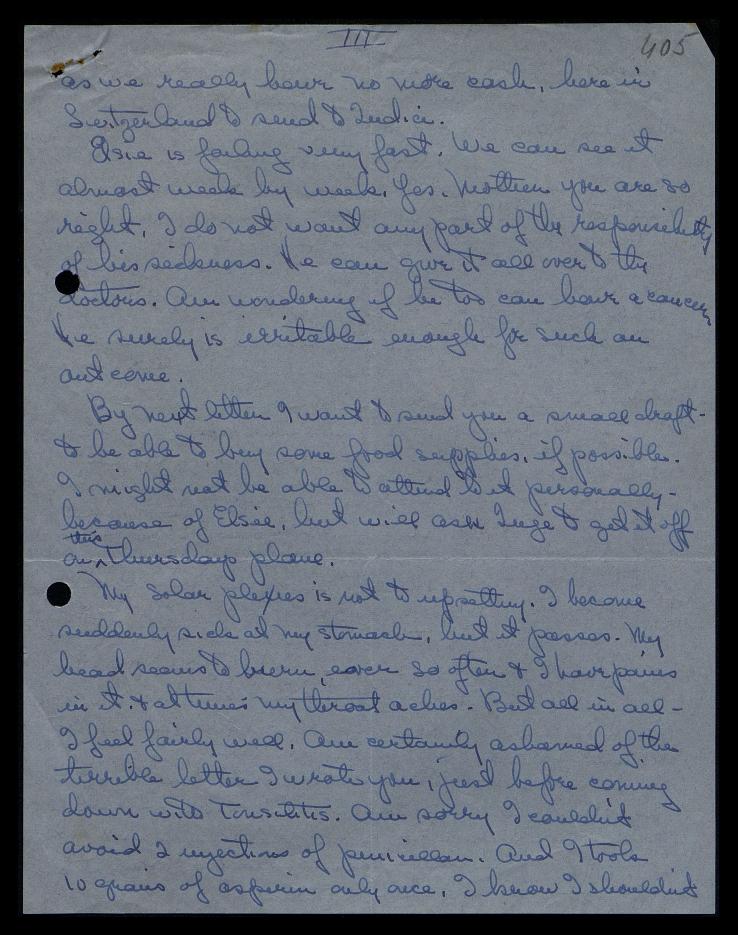 III
405
as we really have no more cash, here in
Switzerland to send to India.
Elsie is failing very fast. We can see it
almost week by week. Yes. Mother you are so
right, I do not want any part of the responsibility
of his sickness. He can give it all over to the
doctors. Am wondering if he too can have a cancer
He surely is irritable enough for such an
outcome.
By next letter I want to send you a small draft-
to be able to buy some food supplies, if possible.
I might not be able to attend to it personally-
because of Elsie, but will ask Inge to get it off
this
on ^ Thursdays plane.
My solar plexies is not to upsetting. I become
suddenly sick at my stomach, but it passes. My
head seems to burn, ever so often & I have pains
in it. & at times my throat aches. But all in all -
I feel fairly well. Am certainly ashamed of the
terrible letter I wrote you, just before coming
down with Tonsilitis. Am sorry I couldn't
avoid 2 injections of penicillan. And I took
10 grains of asperin only once. I know I shouldn't